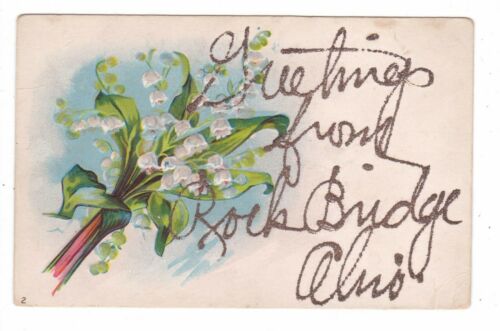 Greetings
from
Rock Bridge
Ohio
2